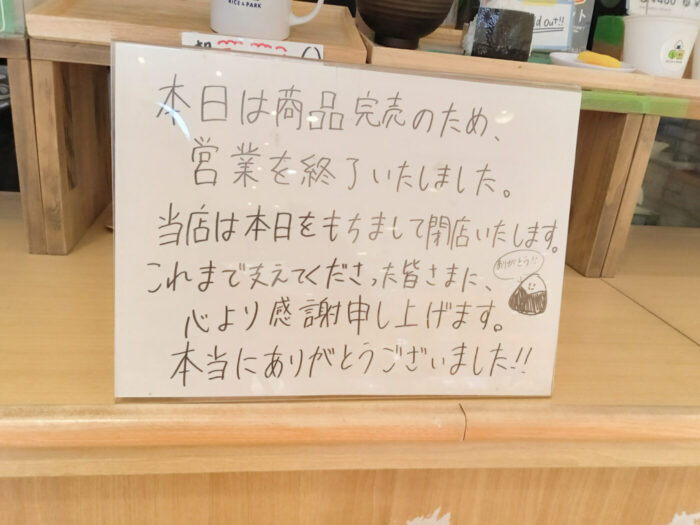 RICE & PARK
old out!!
本日は商品完売のため、
営業を終了いたしました。
当店は本日をもちまして閉店いたします。
これまで支えてくださった皆さまに、
ありがとう!!
心より感謝申し上げます。
本当にありがとうございました!!